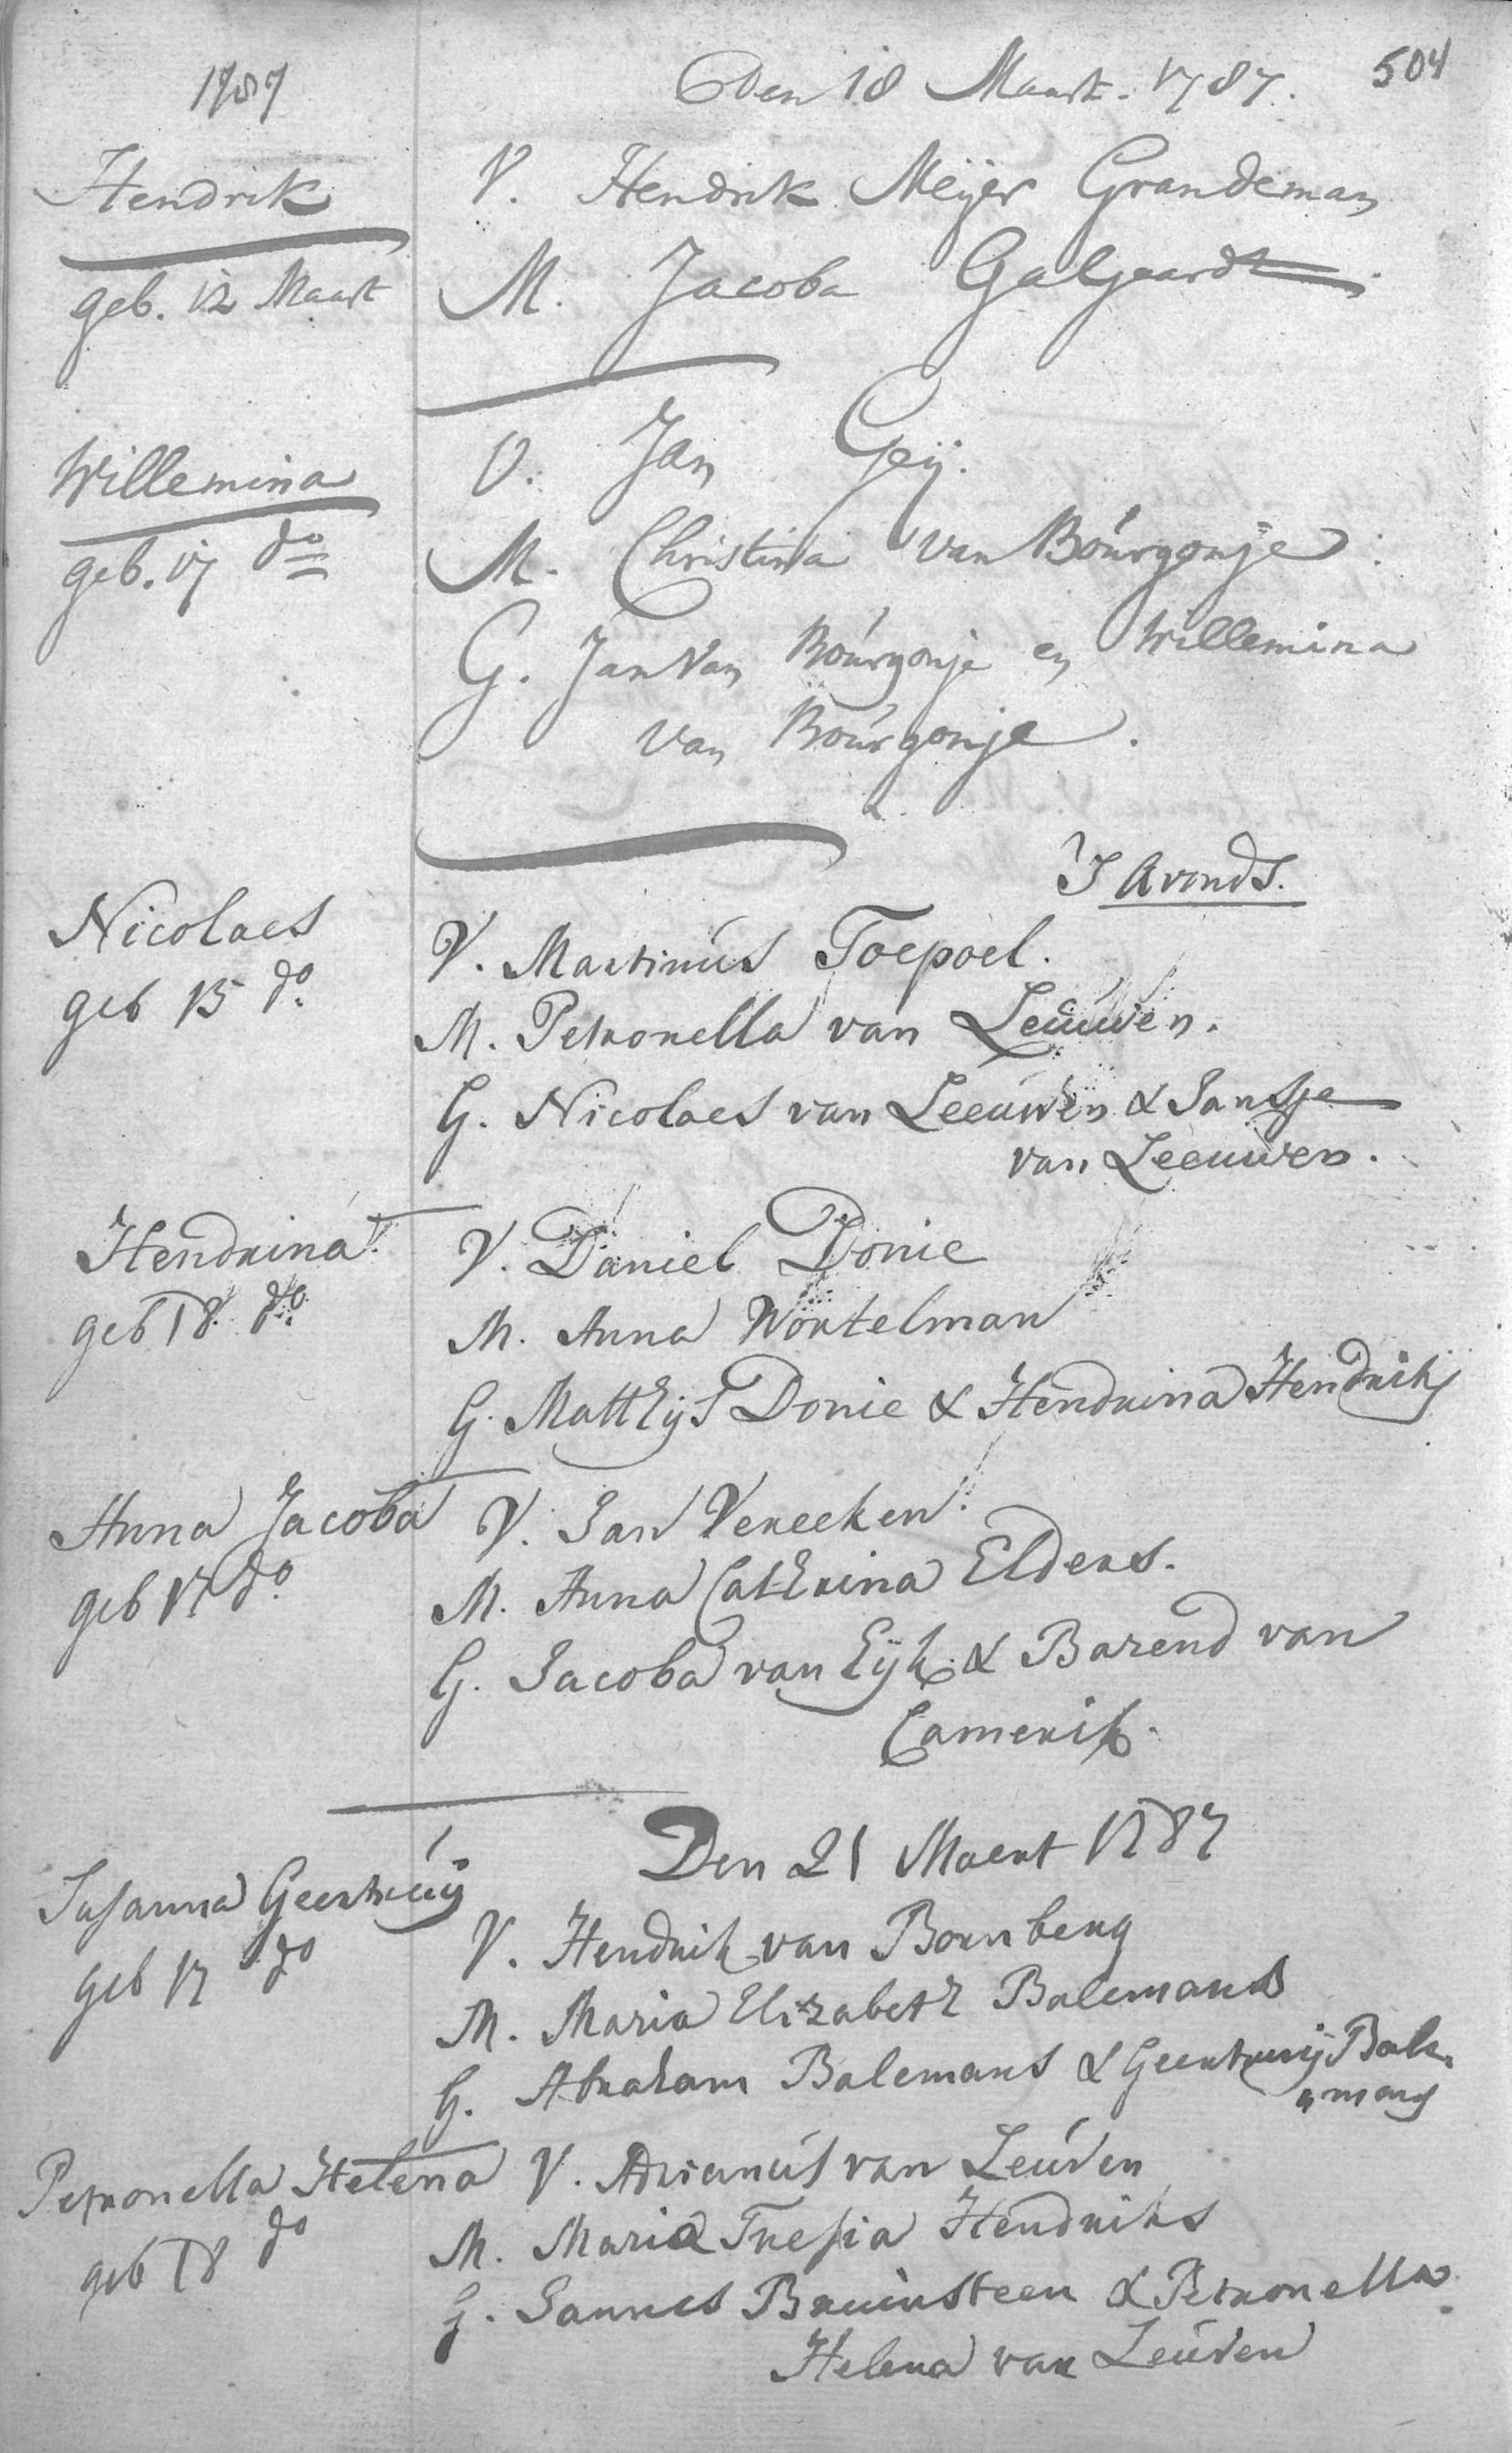 1787
Den 18 Maart. 1787.
504
Hendrik
geb. 12 Maart
V. Hendrik Meijer Grandeman
M. Jacoba Galgaardt
Willemina
geb. 17 do
V. Jan Geij.
M. Christina van Bourgonje
G. Jan Van Bourgonje en Willemina
van Bourgonje.
S Avonds.
Nicolaes
geb 15 do
V. Martinus Toepoel.
M. Petronella van Leeuwen.
G. Nicolaes van Leeuwen & Jansje
van Leeuwen.
Hendrina
geb 18 do
V. Daniel Donie
M. Anna Wortelman
G. Matthijs Donie & Hendrina Hendriks
Anna Jacoba
geb 17 do
V. Jan Vereeken
M. Anna Cathrina Elders.
G. Jacoba van Eijk & Barend van
Camerik.
Den 21 Maert 1787
Susanna Geertruij
geb 17 do
V. Hendrik van Bornberg
M. Maria Elizabeth Balemans
G. Abraham Balemans & Geertruij Bale„
„mans
Petronella Helena
geb 18 do
V. Adrianus van Leuven
M. Maria Tresia Hendriks
G. Jannes Bruinsteen & Petronella
Helena van Leuven